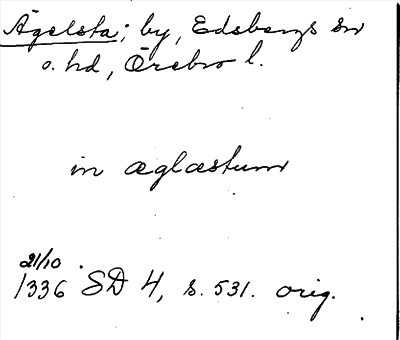 Ägelsta; by, Edsbergs sn
o. hd, Örebro l.
in æglæstum
21/10
1336 SD 4, s. 531. orig.